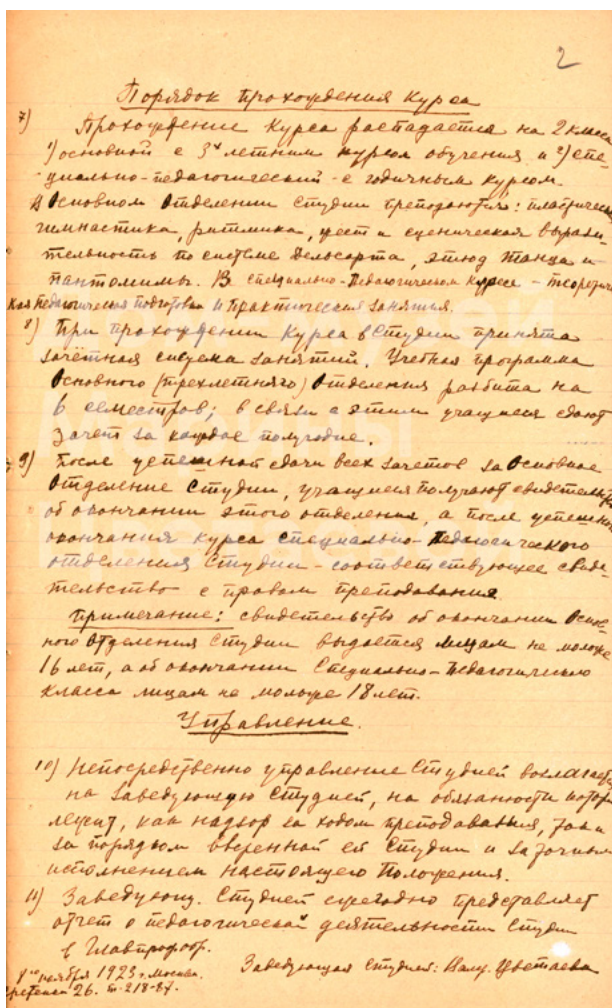 2
Порядок прохождения Курса
7) Прохождение Курса распадается на 2 класса
1) основной с 3х летним курсом обучения и 2) спе-
-циально-педагогический - с годичным курсом.
В Основном Отделении Студии преподаются: пластическая
гимнастика, ритмика, жест и сценическая вырази
тельность по системе Дельсарта, этюд танца и
пантомимы. В специально-Педагогическом Курсе - теоретичес
кая педагогическая подготовка и практические занятия.
8) При прохождении Курса в Студии принята
зачётная система занятий. Учебная программа
Основного (трехлетняго) Отделения разбита на
6 семестров; в связи с этим учащиеся сдают
Зачет за каждое полугодие.
9) После успешной сдачи всех зачетов за Основное
Отделение Студии, учащиеся получают свидетельство
об окончании этого отделения, а после успешного
окончания курса специально-Педагогического
отделения Студии - соответствующее свиде-
тельство с правом преподавания.
Примечание: свидетельство об окончании Основ
ного Отделения Студии выдается лицам не моложе
16 лет, а об окончании Специально-Педагогического
класса лицам не моложе 18 лет.
Управление.
10) Непосредственно управление Студией возлагается
на Заведующую Студией, на обязанности которой
лежит, как надзор за ходом преподавания, так и
за порядком вверенной ей Студии и за точным
исполнением настоящего Положения.
11) Заведующ. Студией ежегодно представляет
отчет о педагогической деятельности Студии
в Главпрофобр.
ноября 1923 г. Москва.
Заведующая Студией: Цветаева
Сретенка 26. т. 2-18-87.